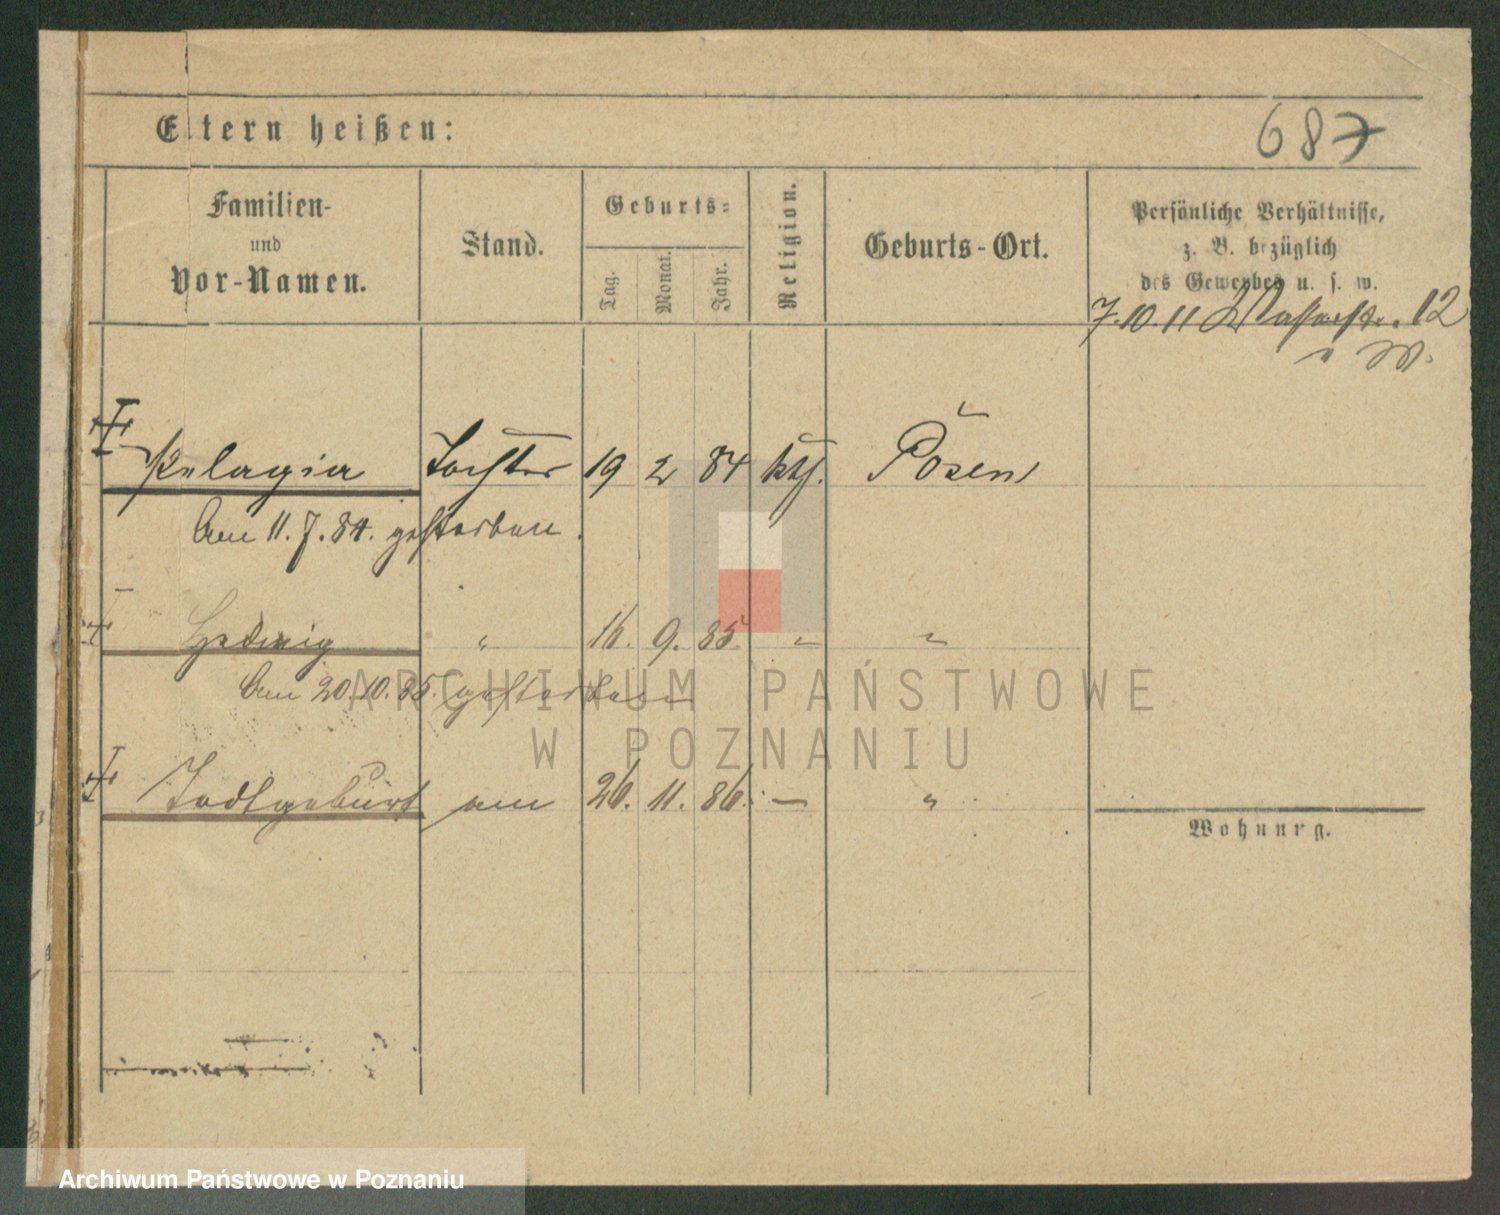 Eltern heißen:
687
Familien-
und
Vor-Namen.
Stand.
Geburts-
Tag.
Monat.
Jahr.
Religion.
Geburts-Ort.
Persönliche Verhältnisse,
z. B. bezüglich
des Gewerbes u. s. w.
7.10.11 12
Pelagia Tochter 19 2 84 kth. Posen
Am 11.7.84. gestorben.
Hedwig " 16. 9. 85. " "
Am 20.10.85. gestorben
Todtgeburt am 26. 11. 86. — "
Wohnung.
ARCHIWUM PAŃSTWOWE
W POZNANIU
Archiwum Państwowe w Poznaniu